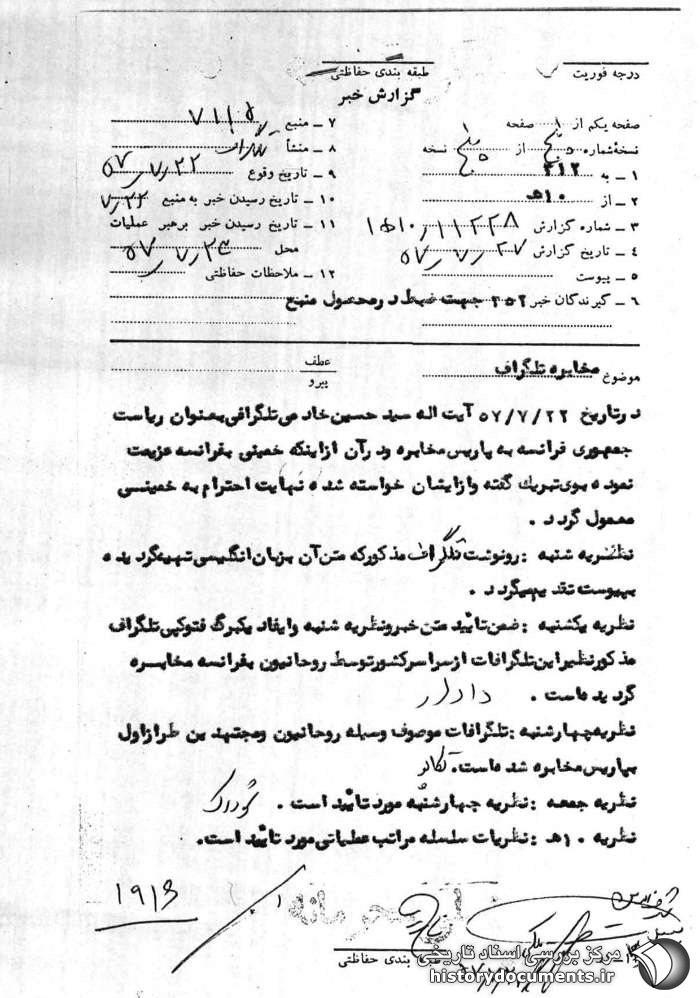 درجه فوریت
طبقه بندی حفاظتی
گزارش خبر
صفحه یکم از ۱ صفحه
نسخه شماره از نسخه
۱ ـ به ۳۱۲
۲ ـ از ۱۰ه
۳ ـ شماره گزارش ۱۵۱۰٫۱۱۲۲۸
۴ ـ تاریخ گزارش ۵۷٫۷٫۲۷
۵ ـ پیوست
۶ ـ گیرندگان خبر ۳۵۲ جهت ضبط در محصول منبع
۷ ـ منبع
۸ ـ منشأ تلگراف
۹ ـ تاریخ وقوع ۵۷٫۷٫۲۲
۱۰ ـ تاریخ رسیدن خبر به منبع
۱۱ ـ تاریخ رسیدن خبر برهبر عملیات
محل ۵۷٫۷٫۲۳
۱۲ ـ ملاحظات حفاظتی
موضوع مخابره تلگراف
عطف
پیرو
در تاریخ ۵۷/۷/۲۲ آیت اله سید حسین خادمی تلگرافی بعنوان ریاست
جمهوری فرانسه به پاریس مخابره و در آن از اینکه خمینی بفرانسه عزیمت
نموده بوی تبریك گفته و از ایشان خواسته شده نهایت احترام به خمینی
معمول گردد .
نظریه شنبه : رونوشت تلگراف مذکور که متن آن بزبان انگلیسی تهیه گردیده
بپیوست تقدیم میگردد .
نظریه یکشنبه : ضمن تائید متن خبر و نظریه شنبه و ایفاد یکبرگ فتوکپی تلگراف
مذکور نظیر این تلگرافات از سراسر کشور توسط روحانیون بفرانسه مخابره
گردیده است . دادار
نظریه چهارشنبه : تلگرافات موصوف وسیله روحانیون و مجتهدین طراز اول
بپاریس مخابره شده است.
نظریه جمعه : نظریه چهارشنبه مورد تائید است .
نظریه ۱۰ه‍ : نظریات سلسله مراتب عملیاتی مورد تائید است.
طبقه بندی حفاظتی
مرکز بررسی اسناد تاریخی
historydocuments.ir